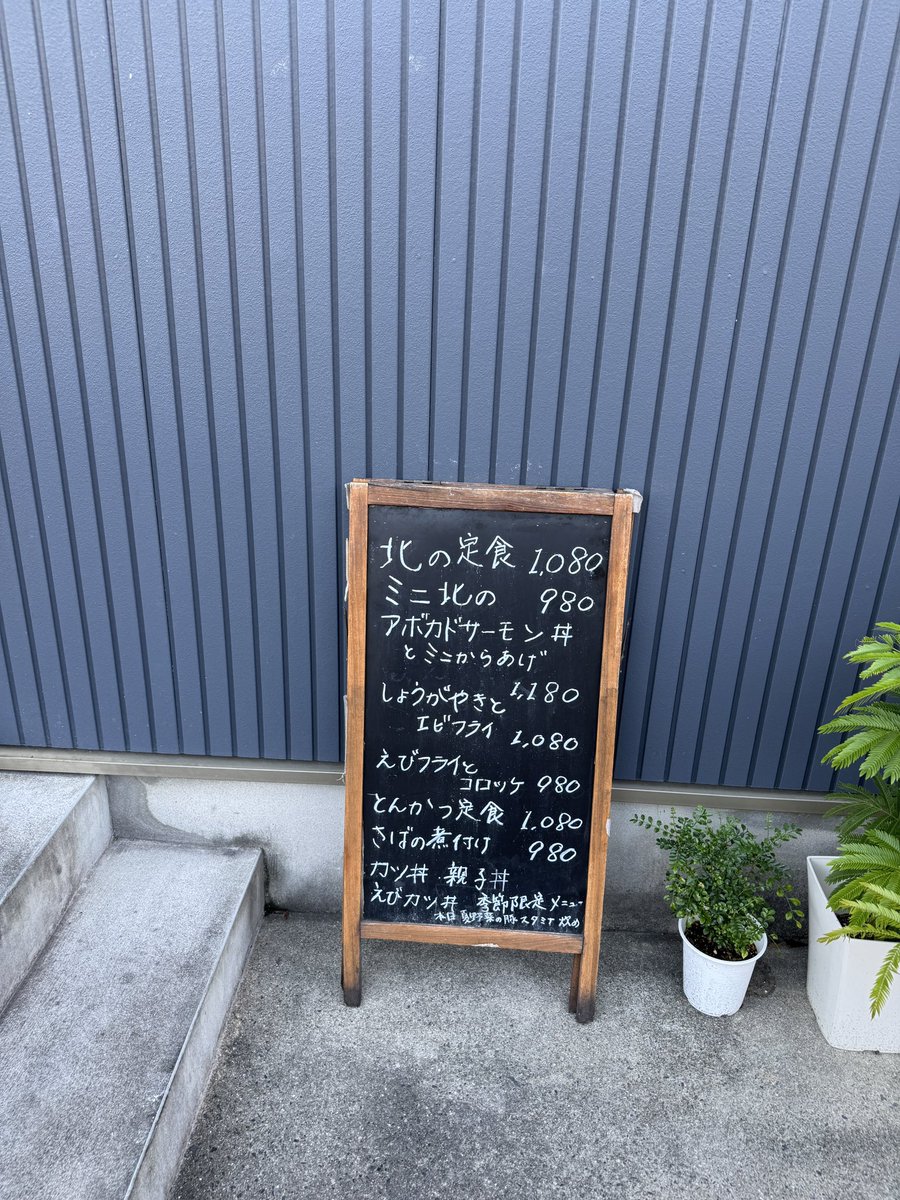 北の定食 1,080
ミニ北の 980
アボカドサーモン丼
とミニからあげ
1,180
しょうがやきと
エビフライ 1,080
えびフライと
コロッケ 980
とんかつ定食 1,080
さばの煮付け 980
カツ丼・親子丼
えびカツ丼 季節限定メニュー
夏野菜の豚スタミナ炒め